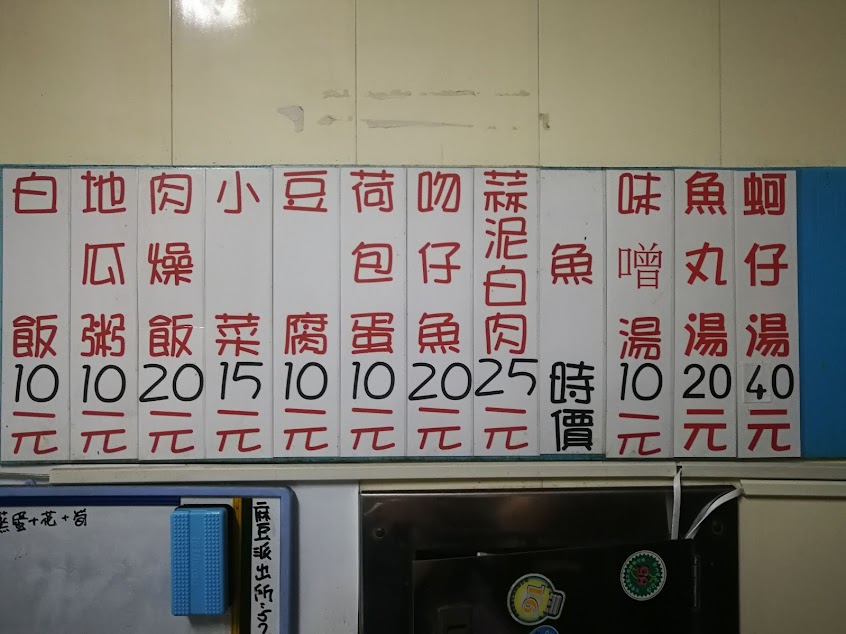 白飯10元
地瓜粥10元
肉燥飯20元
小菜15元
豆腐10元
荷包蛋10元
吻仔魚20元
蒜泥白肉25元
魚時價
味噌湯10元
魚丸湯20元
蚵仔湯40元
蒸蛋+花+筍
麻豆派出所:57